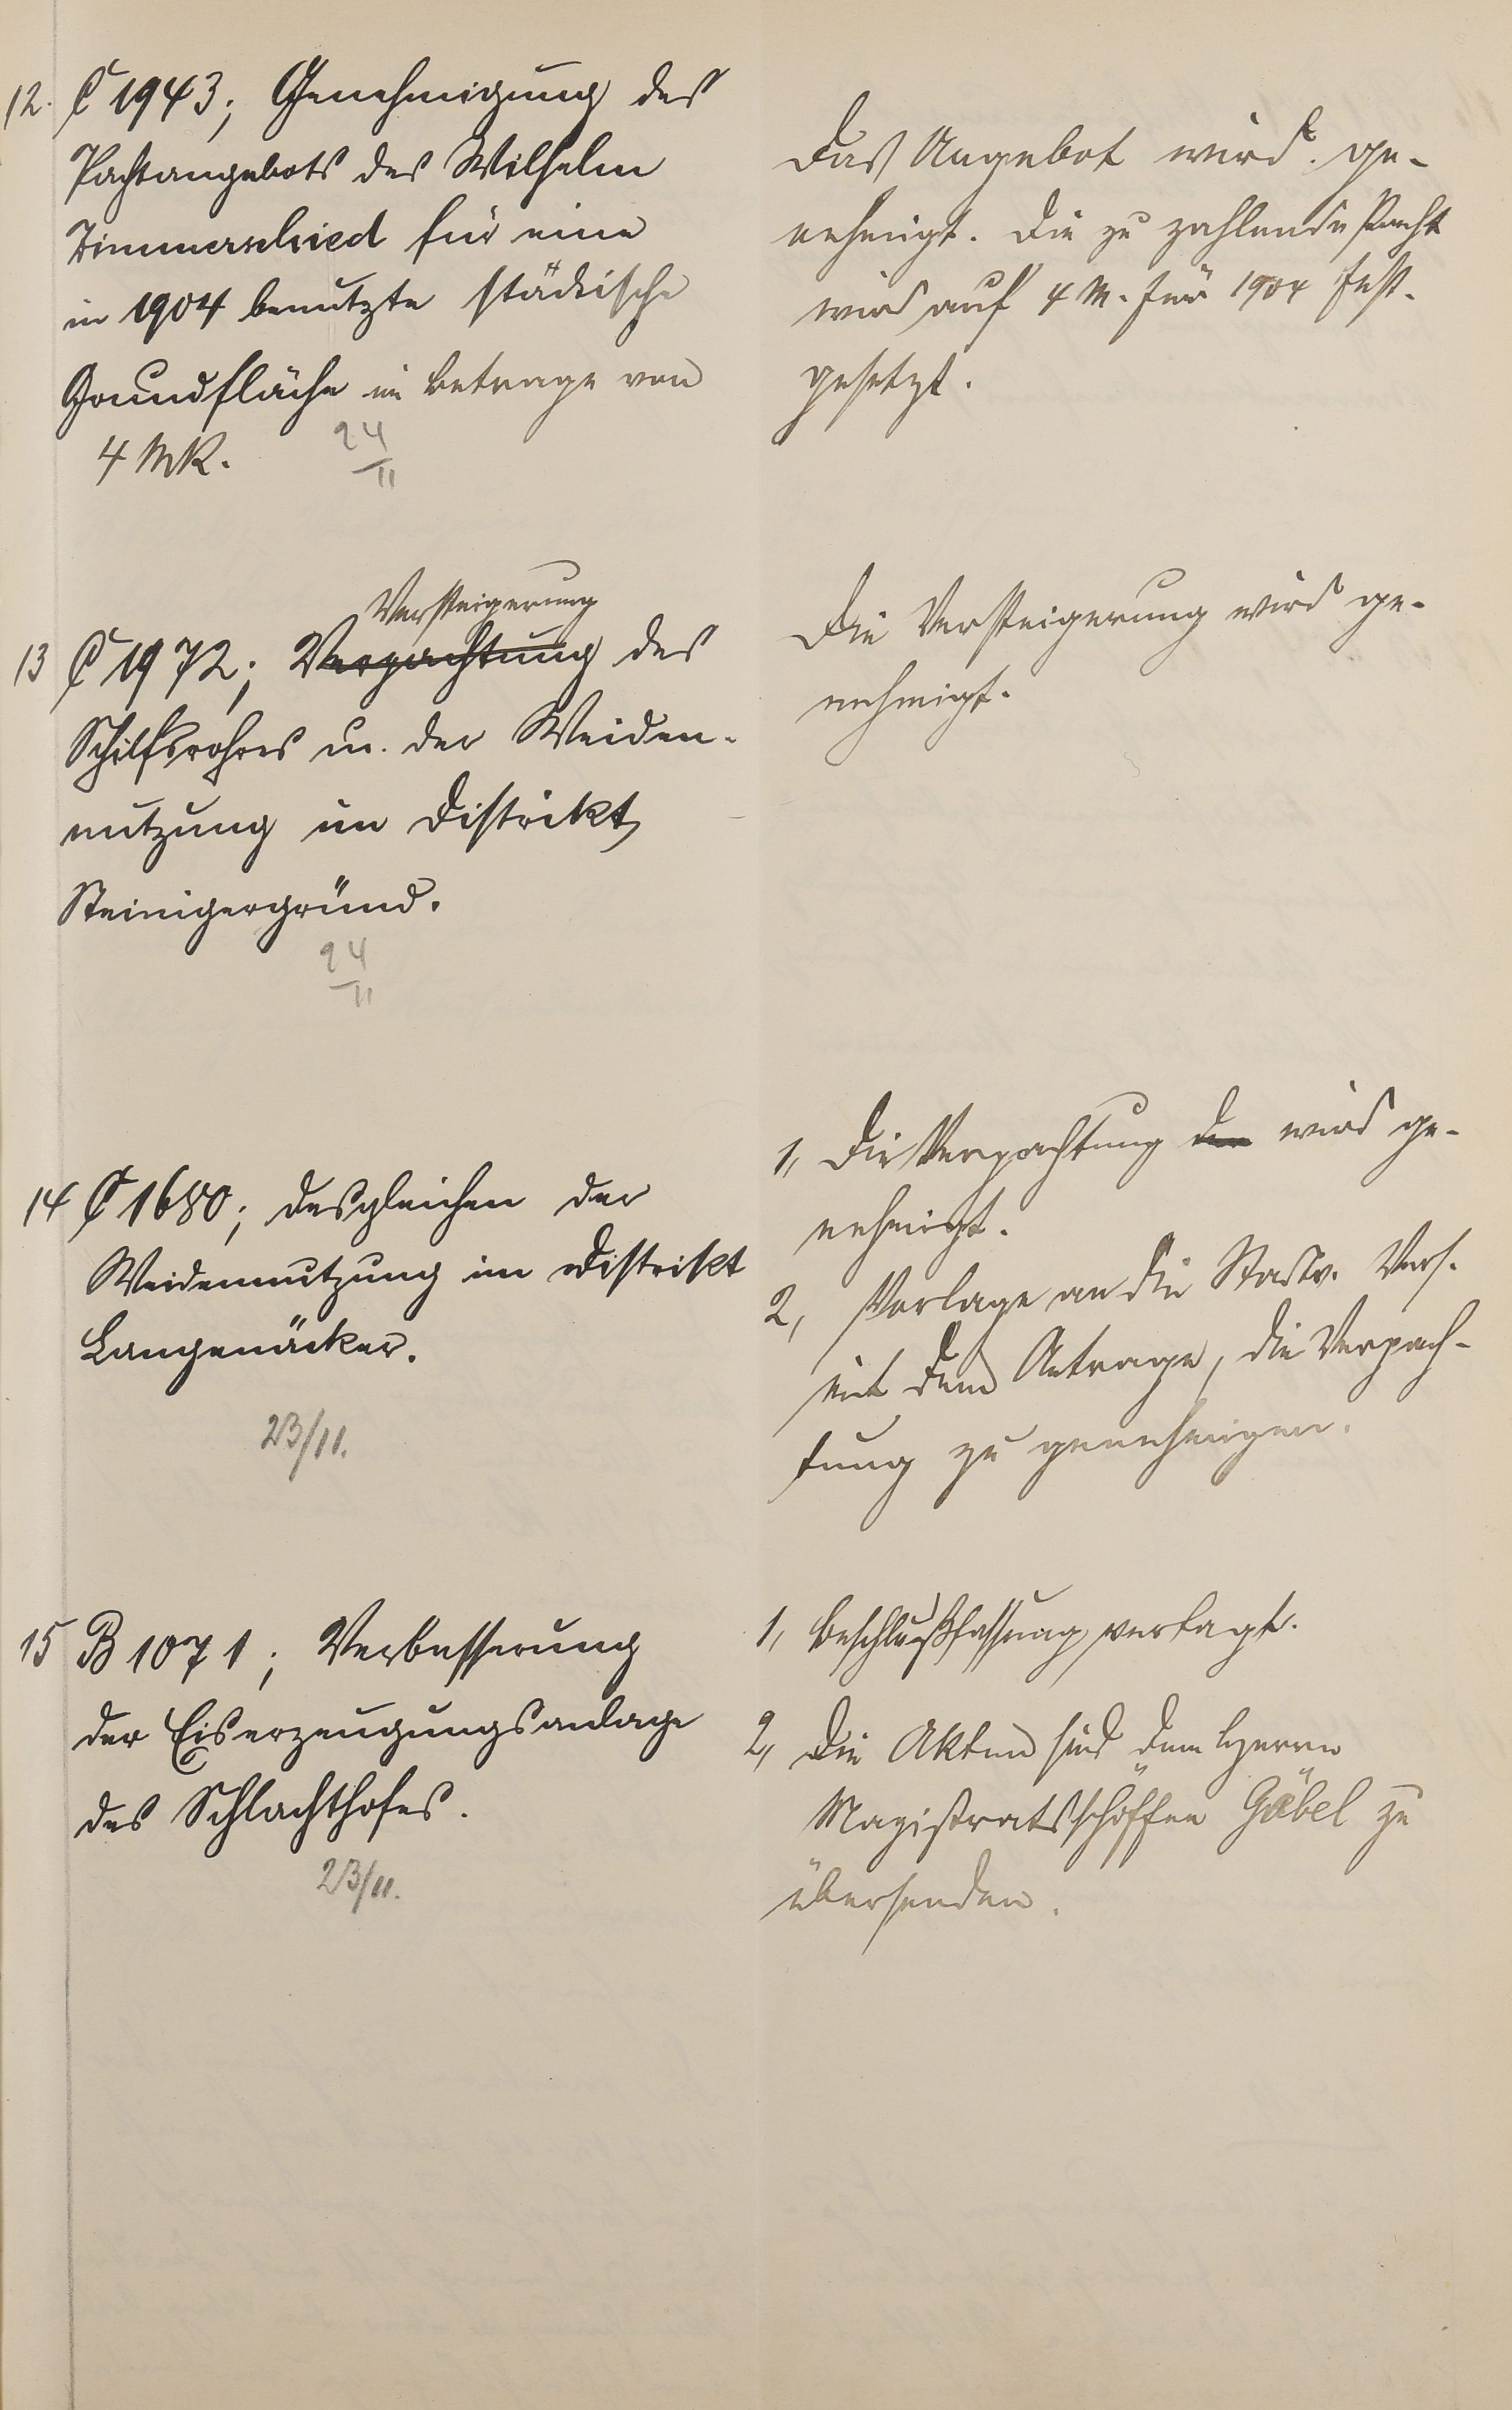 12. C 1943; Genehmigung des
Pachtangebots des Wilhelm
Zimmerschied für eine
in 1904 benutzte städtische
Grundfläche im Betrage von
4 MK.
24
11
Das Angebot wird ge-
nehmigt. Die zu zahlende Pacht
wird auf 4 M. für 1904 fest-
gesetzt.
Versteigerung
13 C 1972; Verpachtung des
Schilfrohres u. der Weiden-
nutzung im Distrikt
Steinigergründ.
24
11
Die Versteigerung wird ge-
nehmigt.
14 C 1680; desgleichen der
Weidennutzung im Distrikt
Langenäcker.
23/11.
1, Die Verpachtung der wird ge-
nehmigt.
2, Vorlage an die Stadtv. Vers.
mit dem Antrage, die Verpach-
tung zu genehmigen.
15 B 1071; Verbesserung
der Eiserzeugungsanlage
des Schlachthofes.
23/11.
1, Beschlußfassung vertagt.
2, Die Akten sind dem Herrn
Magistratsschöffen Göbel zu
übersenden.